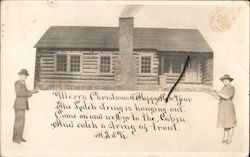 Merry Christmas & Happy New Year
The Latch string is hanging out.
Come on and we'll go to the Cabin.
And catch a string of trout.